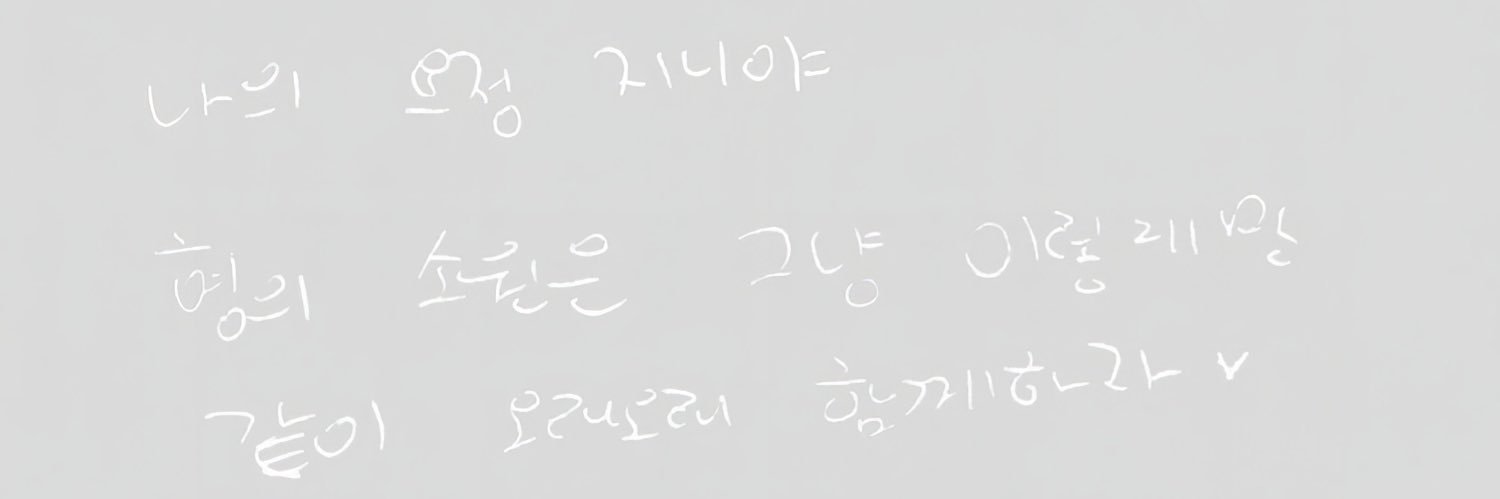 나의 요정 지니야
형의 소원은 그냥 이렇게만
같이 오래오래 함께하라 v